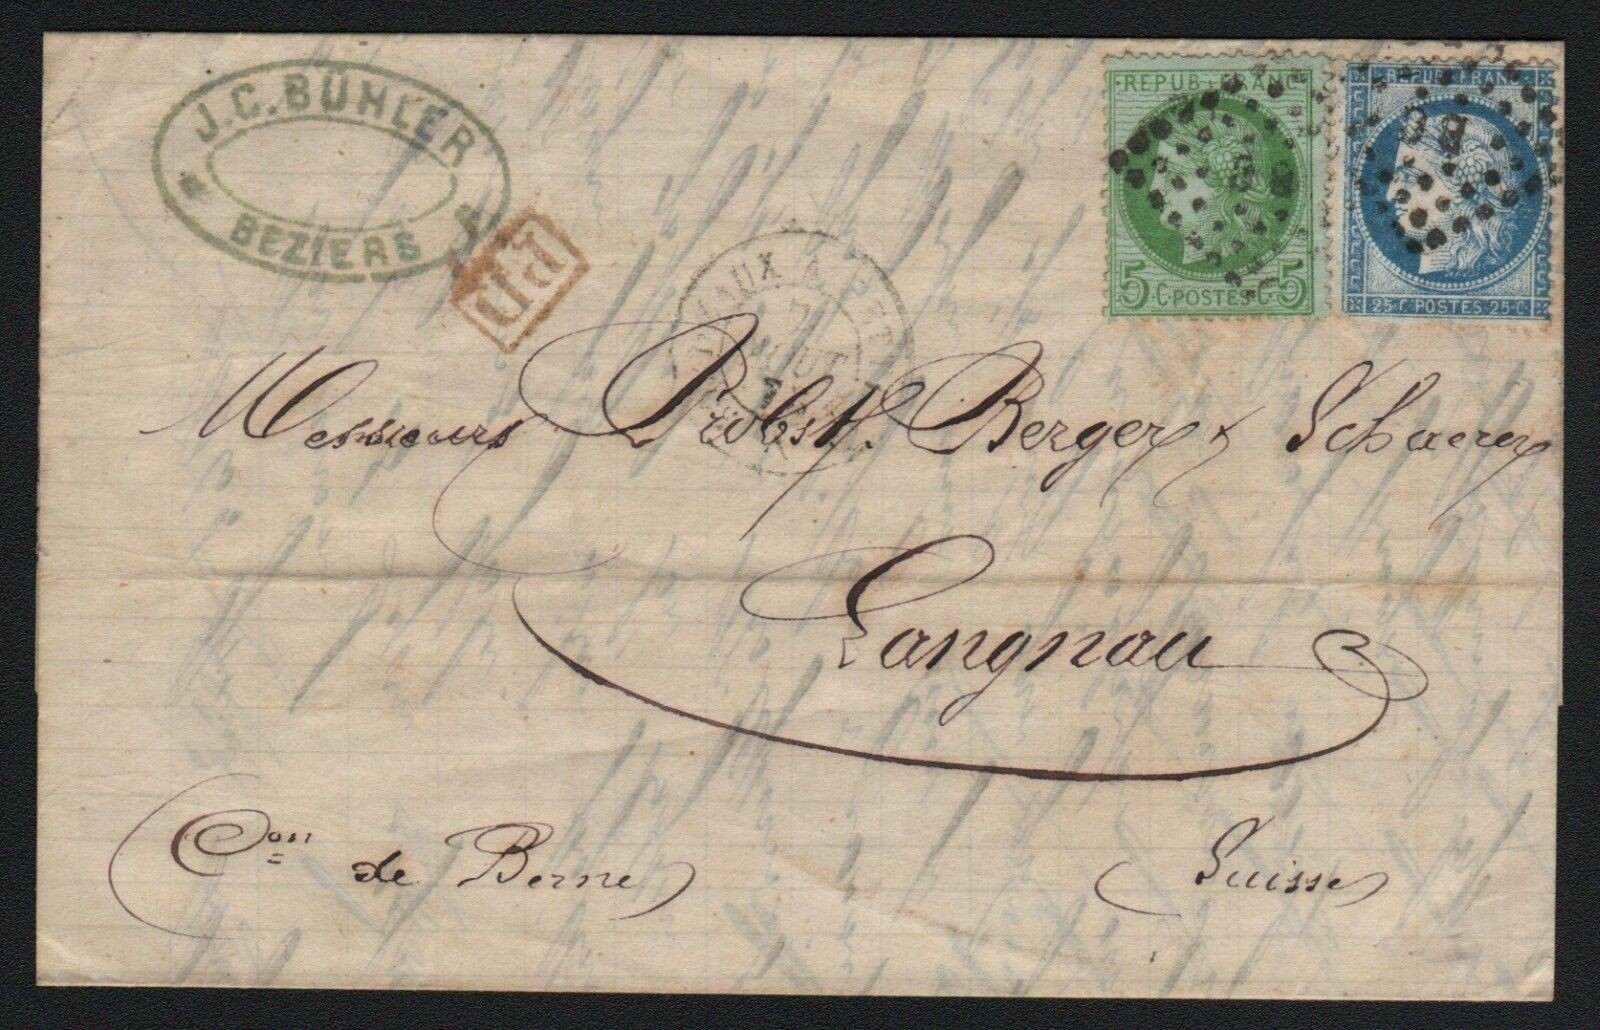 J.C. BÜHLER
BEZIERS
PD
REPUB. FRANC.
5 C. POSTES C. 5
REPUB. FRANC.
25 C. POSTES 25 C.
BC
7
AOUT
Messieurs Probst. Berger & Schaerer
Langnau
Con de Berne) (Suisse)